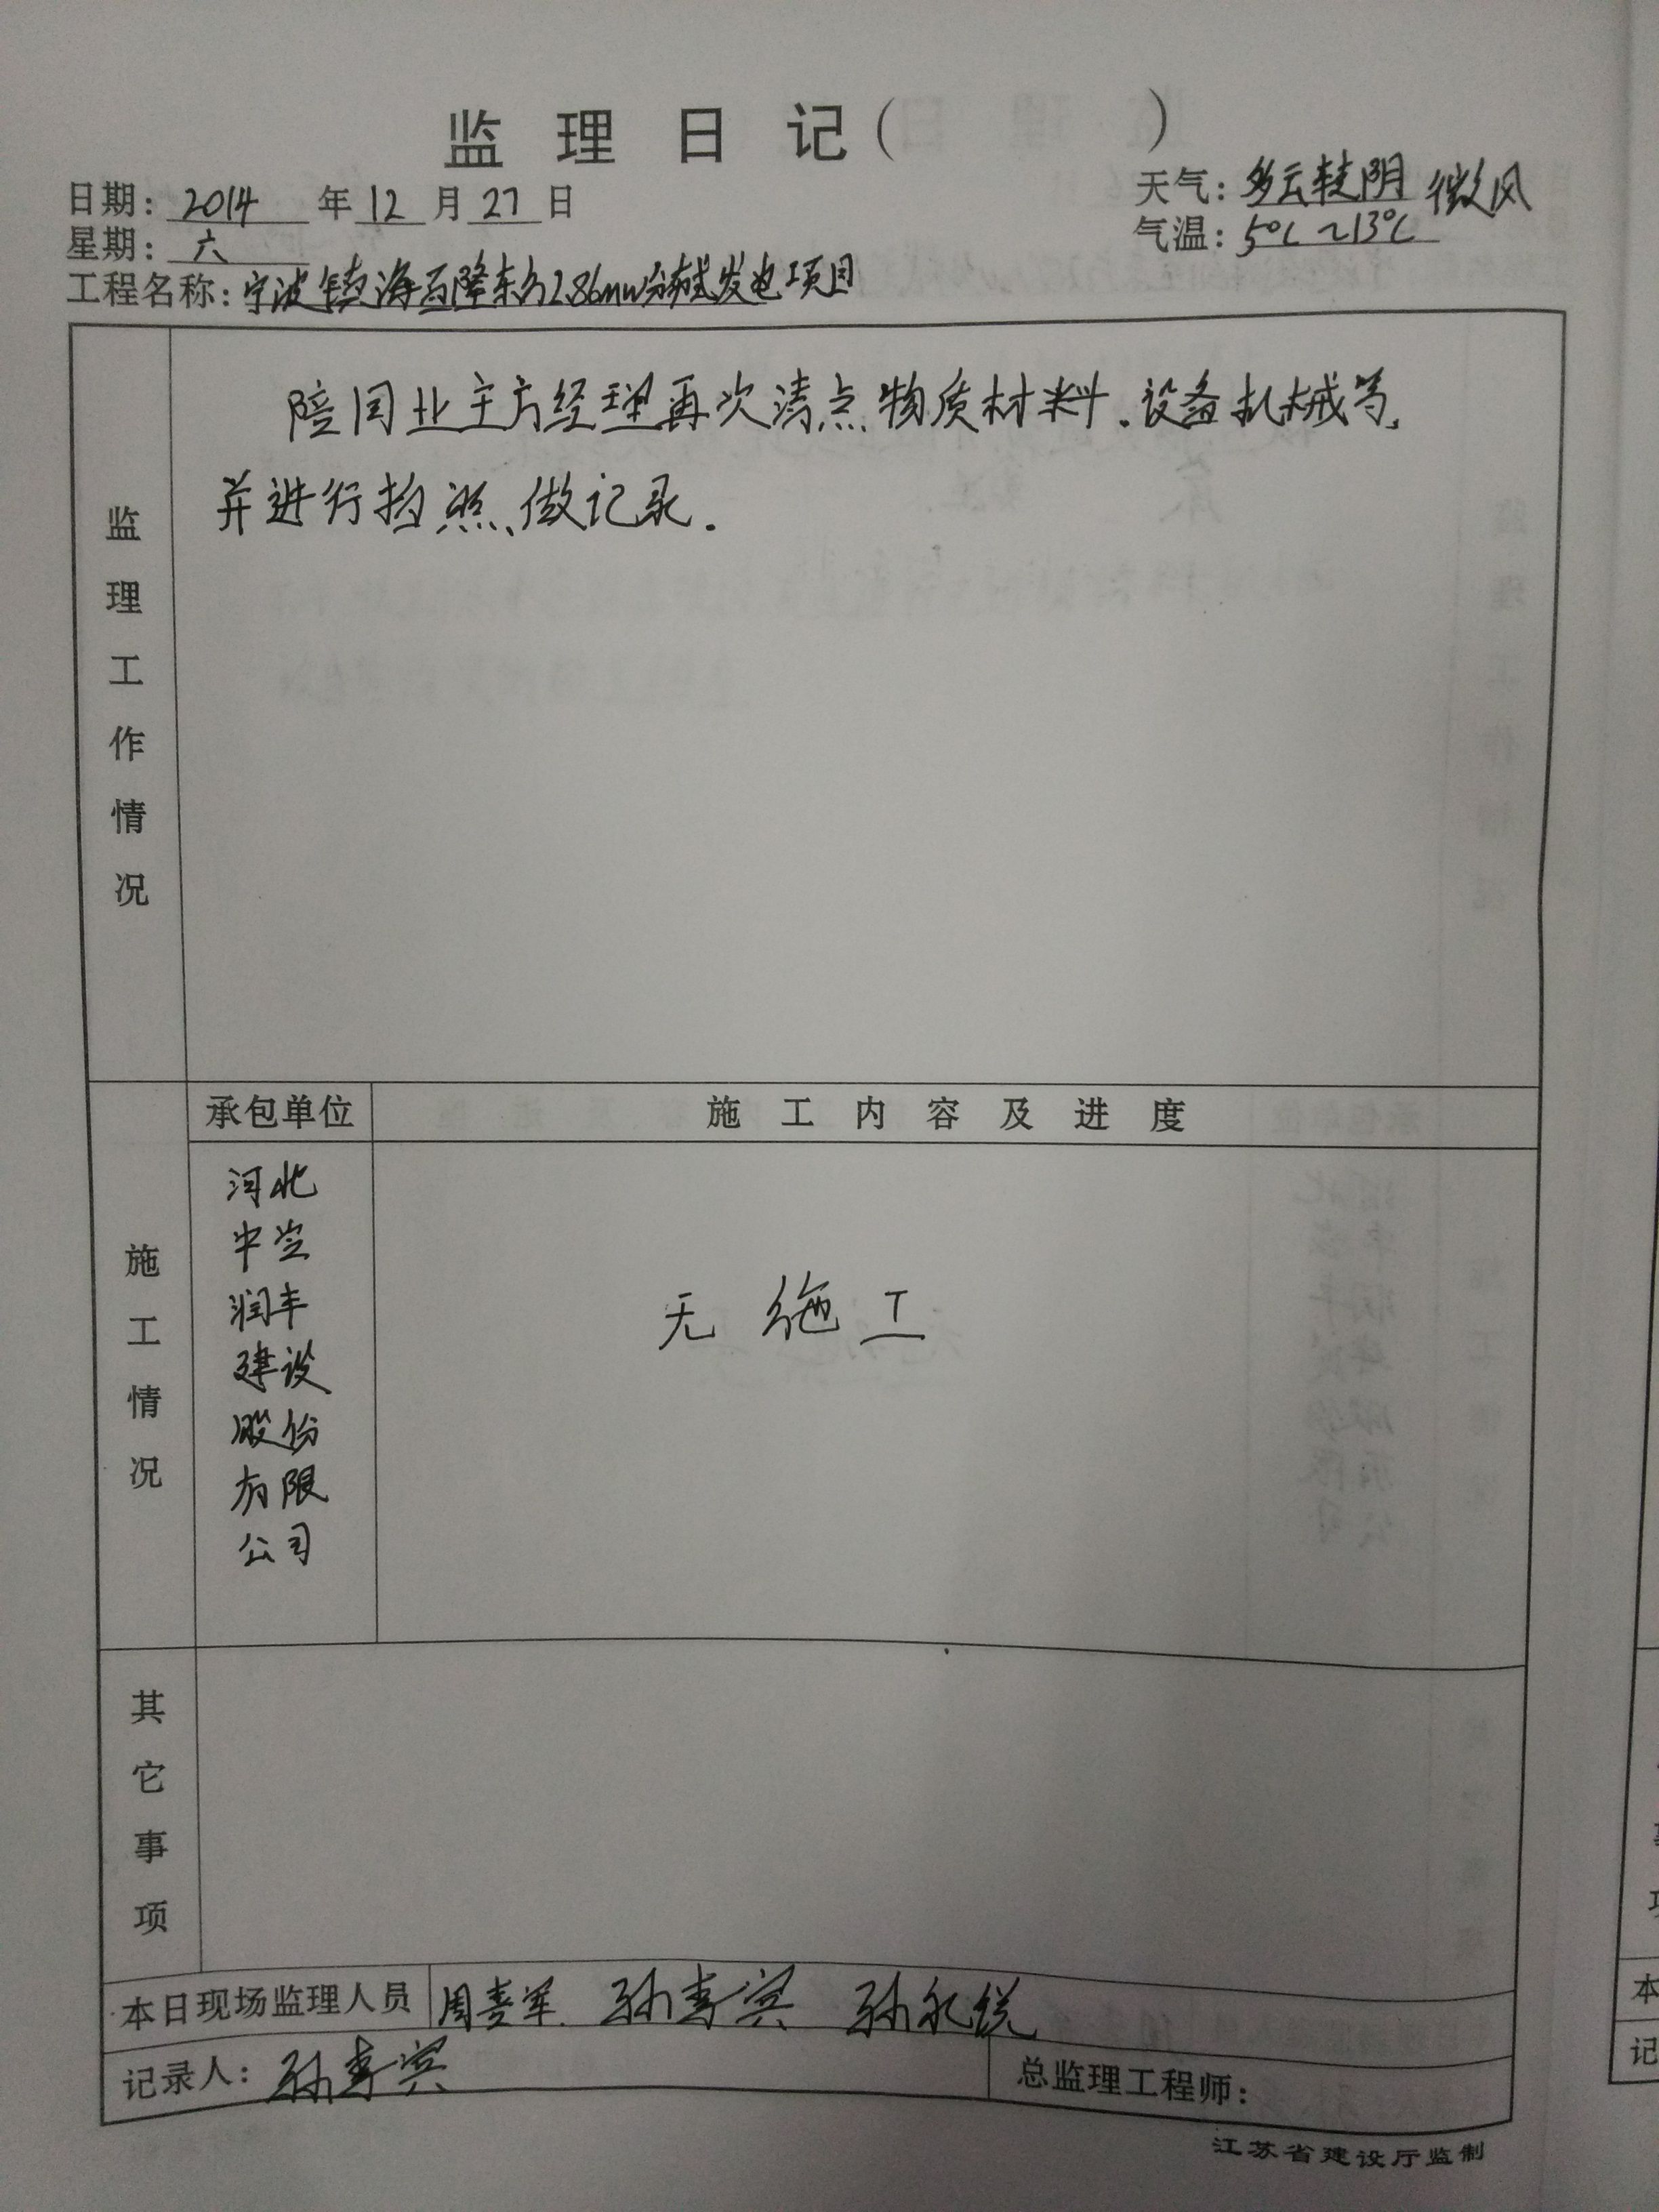 监理日记(        )
日期: 2014 年 12 月 27 日
天气: 多云转阴 微风
星期: 六
气温: 5℃~13℃
工程名称: 宁波镇海百隆东方2.86mw分布式发电项目
监理工作情况
陪同业主方经理再次清点物质材料.设备机械等,
并进行拍照、做记录.
施工情况
承包单位
施工内容及进度
河北
中岩
润丰
建设
股份
有限
公司
无 施 工
其它事项
本日现场监理人员 周喜军. 孙春宾 孙永悦
记录人: 孙春宾
总监理工程师:
江苏省建设厅监制
本
记